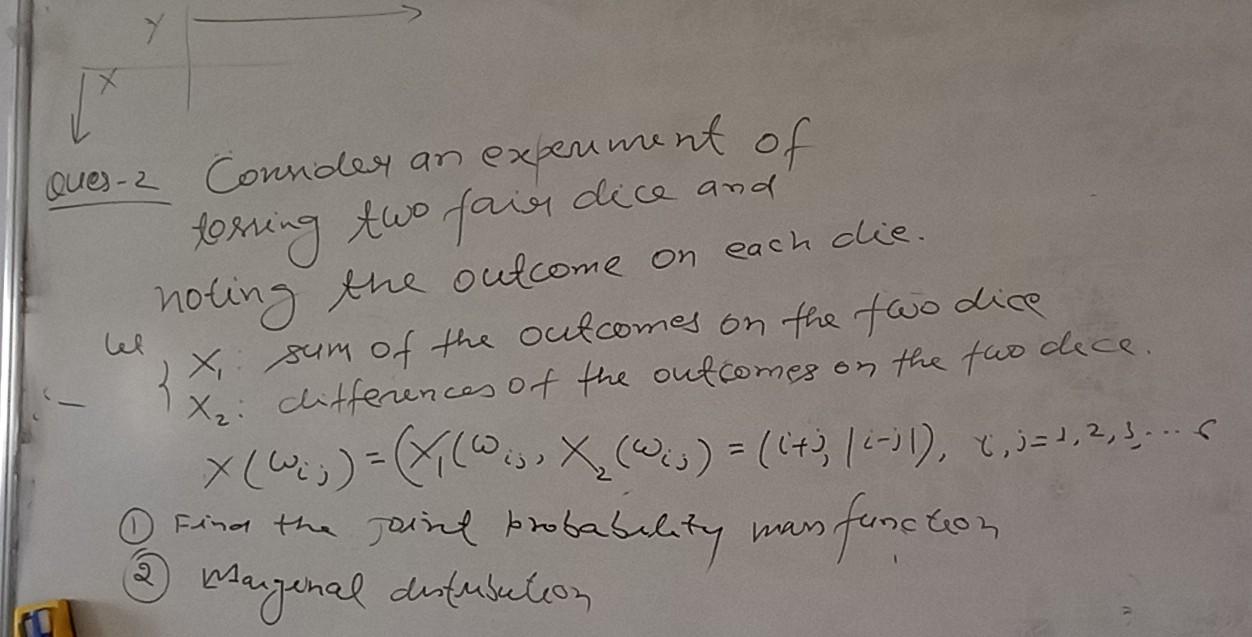 Y
X
Ques-2 Consider an experiment of
tossing two fair dice and
noting the outcome on each die.
let X₁: sum of the outcomes on the two dice
X₂: differences of the outcomes on the two dice.
X(ω_ij) = (X₁(ω_ij, X₂(ω_ij) = (i+j, |i-j|), i,j=1,2,3,...6
① Find the joint probability mass function
② Marginal distribution